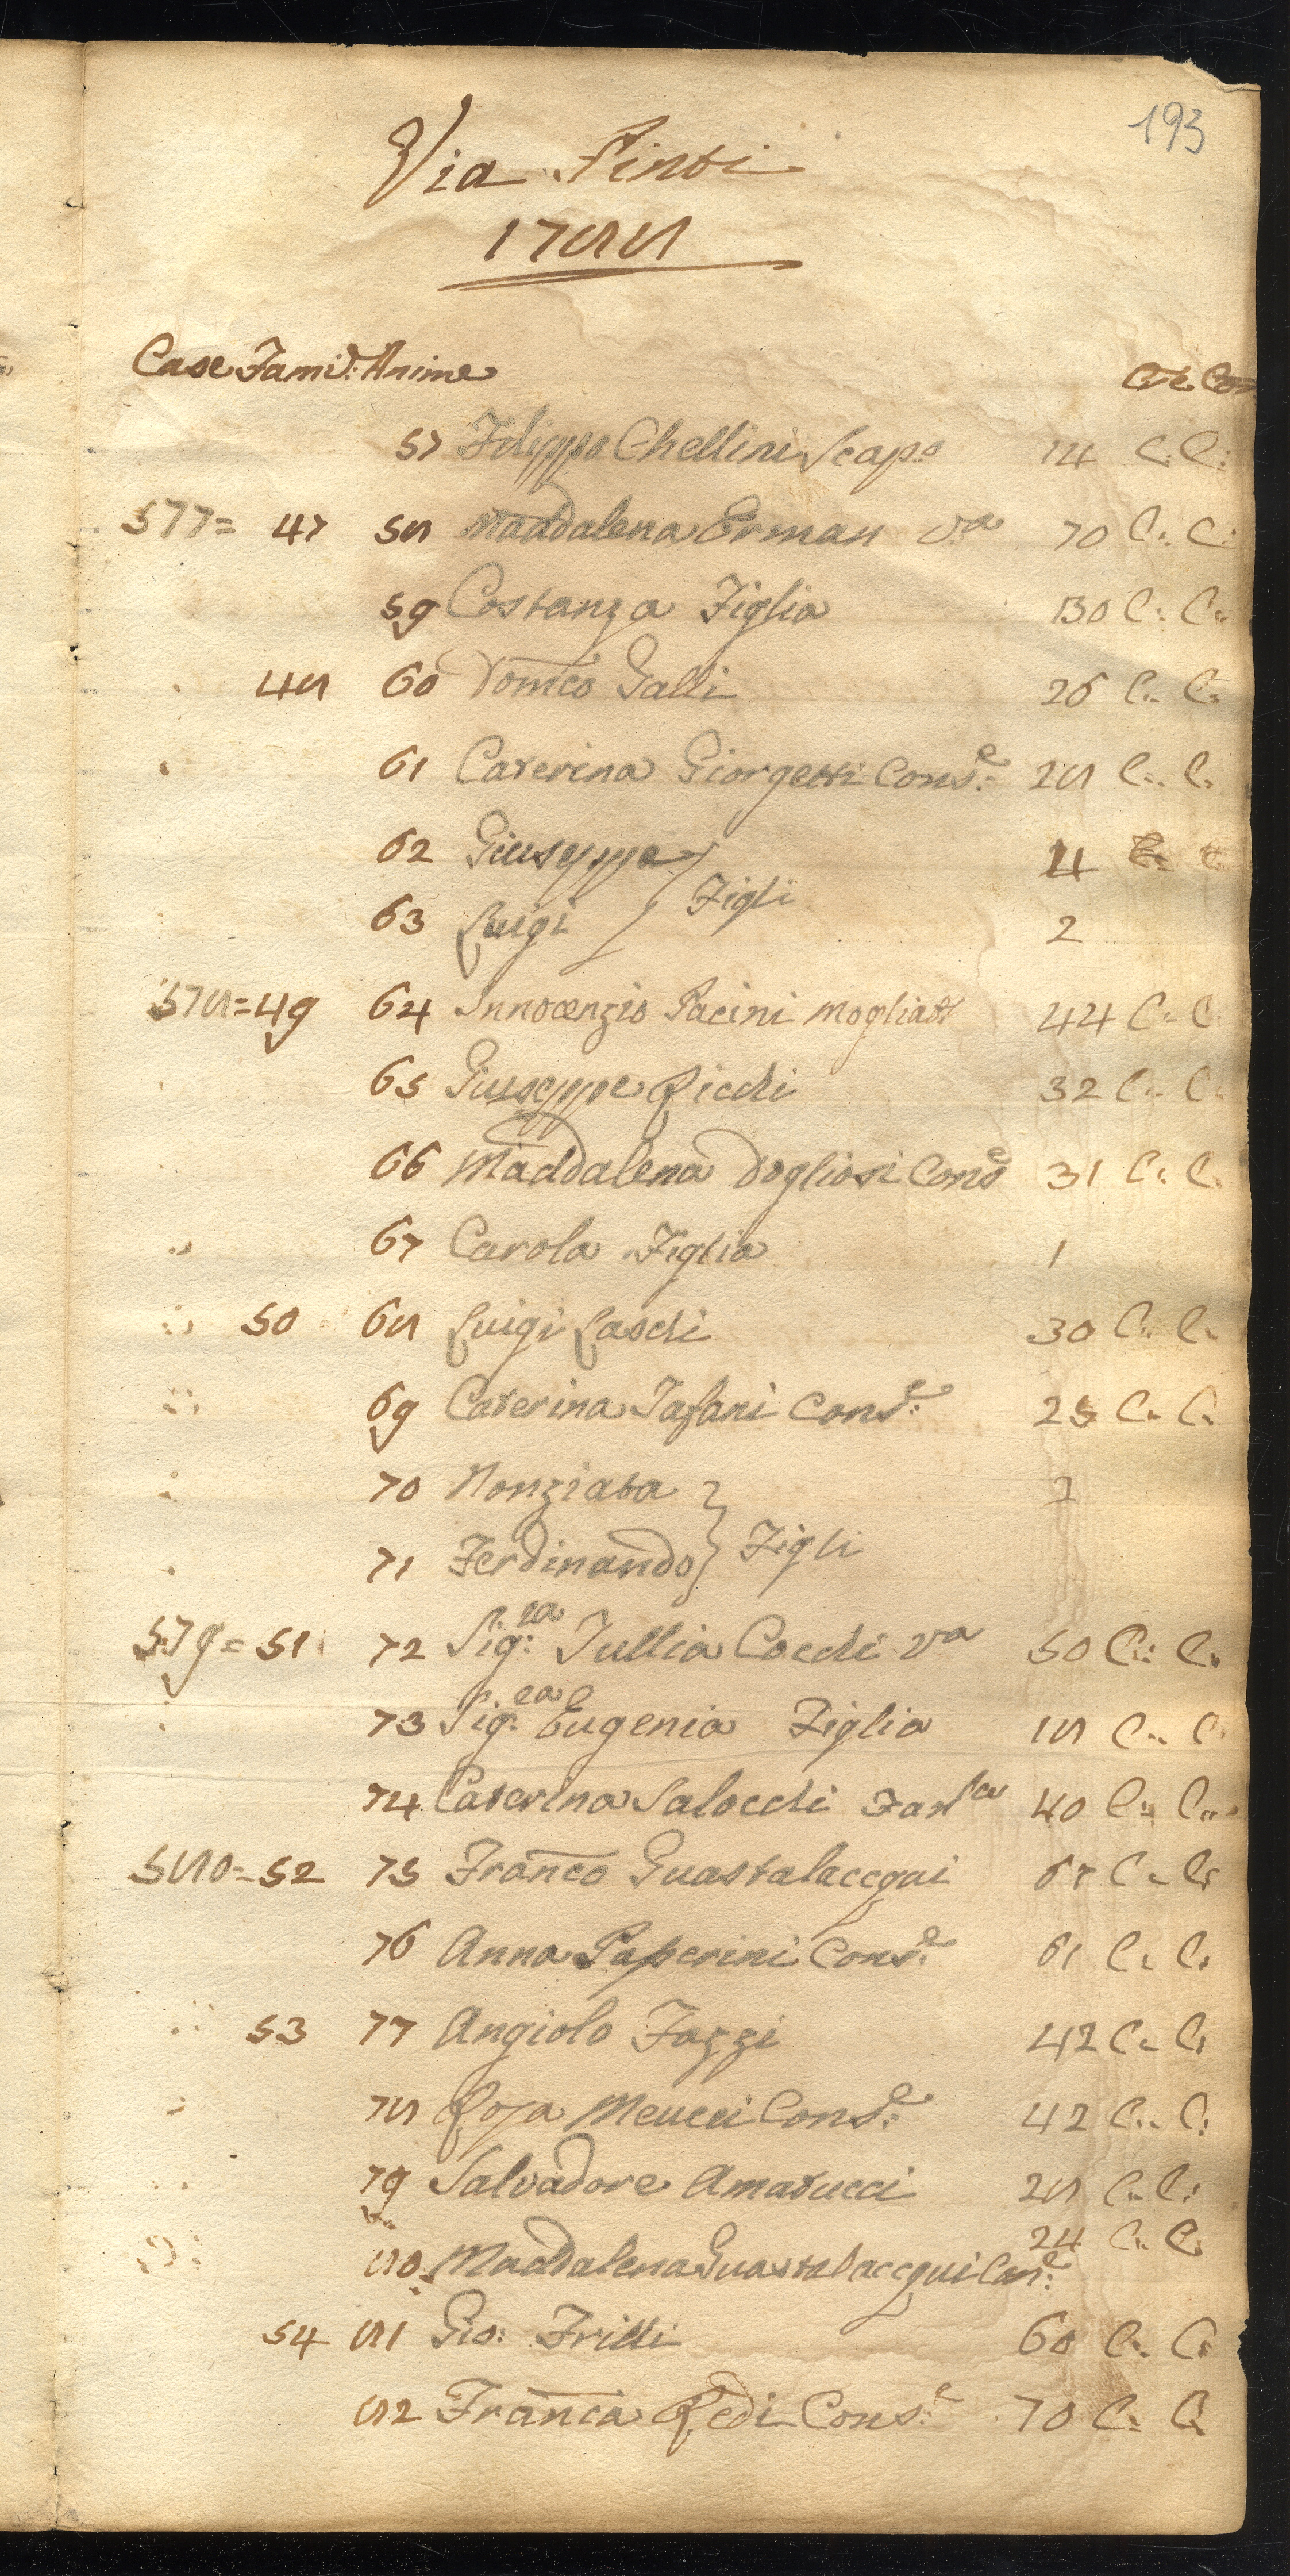 193
Via Pinti
1788
Case Fami: Anime Cre. Com
57 Filippo Chellini Scapo 14 C: C:
577= 47 58 Maddalena Erman va 70 C: C:
59 Costanza Figlia 30 C: C:
48 60 Domco Galli 26 C: C:
61 Caterina Giorgetti Conse: 28 C: C:
62 Giuseppe 4
Figli
63 Luigi 2
578=49 64 Innocenzio Pacini mogliato 44 C: C:
65 Giuseppe Ricchi 32 C: C:
66 Maddalena Dogliosi Conse 31 C: C:
67 Carola Figlia 1
50 68 Luigi Laschi 30 C: C:
69 Caterina Tafani Conse: 25 C: C:
70 Nonziata 2
71 Ferdinando Figli
579= 51 72 Sigra: Tullia Cocchi va 50 C: C:
73 Sigra: Eugenia Figlia 18 C: C:
74 Caterina Salocchi 40 C: C:
580=52 75 Franco Guastalaccqui 67 C: C:
76 Anna Paperini Conse: 61 C: C:
53 77 Angiolo Fazzi 42 C: C:
78 Rosa Meucci Conse: 42 C: C:
79 Salvadore Amatucci 28 C: C:
80 Maddalena Guastalaccqui Cone: 24 C: C:
54 81 Gio: Frilli 60 C: C:
82 Franca Redi Conse: 70 C: C: